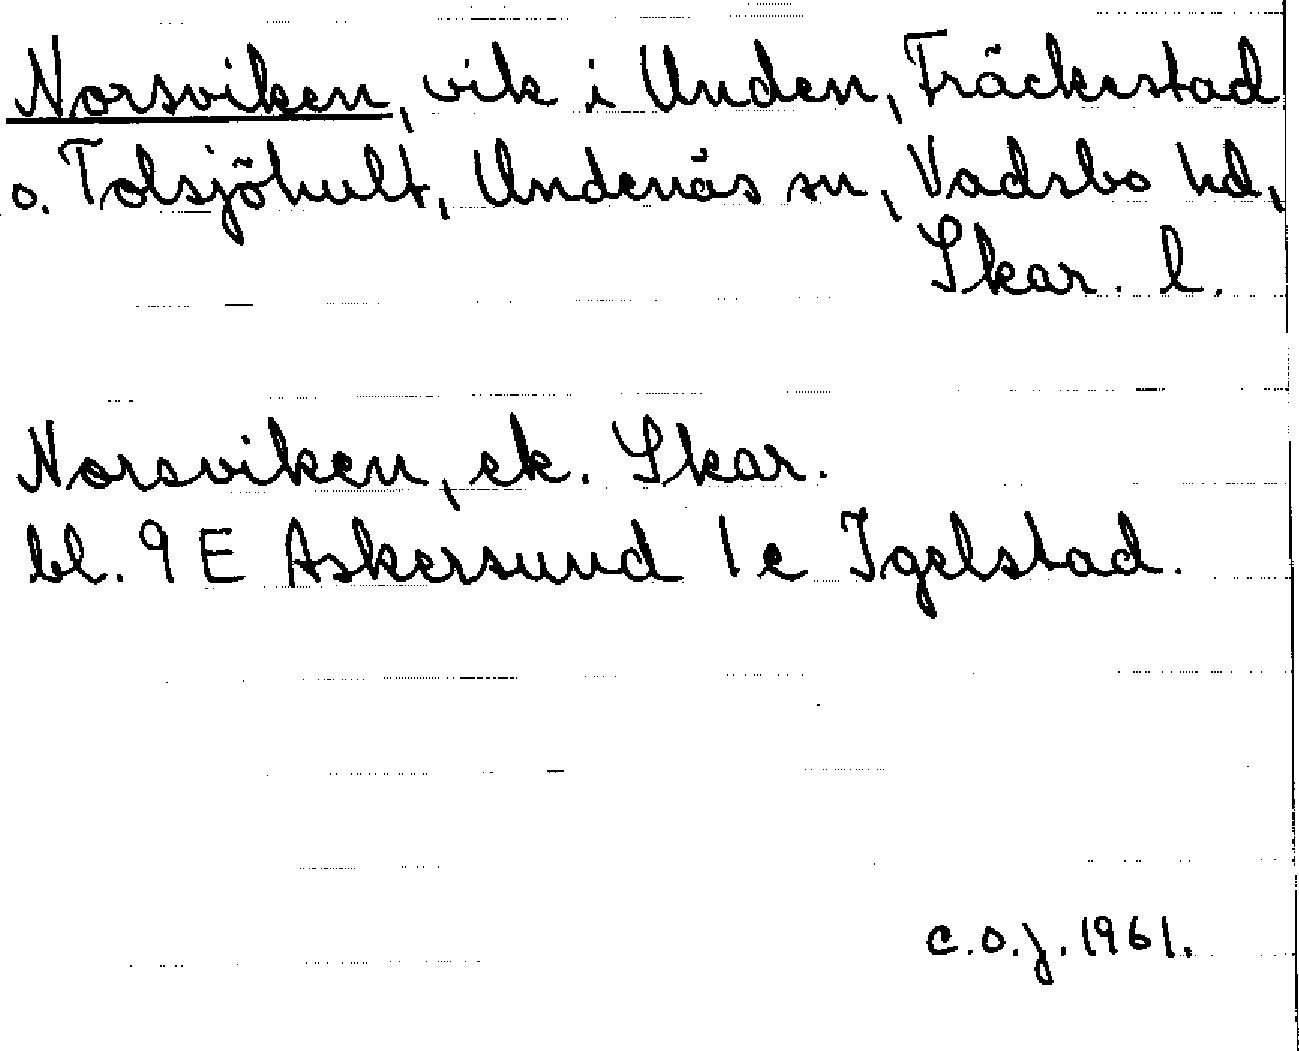 Norsviken, vik i Unden, Fräckestad
o. Tolsjöhult, Undenäs sn, Vadsbo hd,
Skar. l.
Norsviken, ek. Skar.
bl. 9 E Askersund 1 c Igelstad.
c.o.j. 1961.